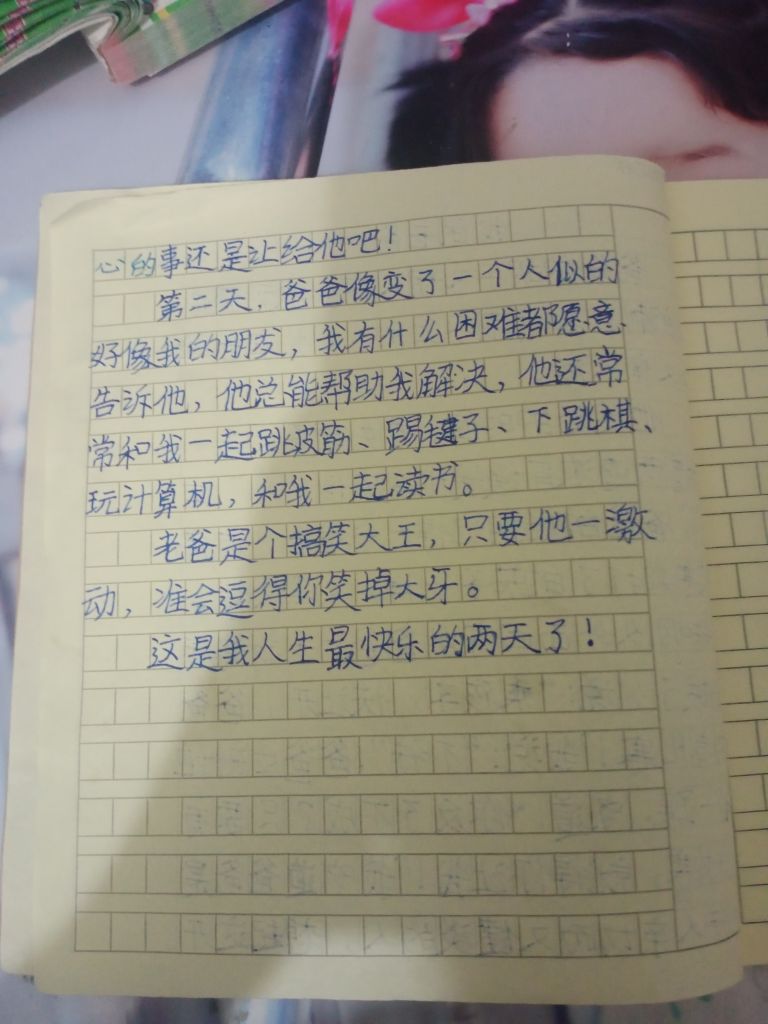 心的事还是让给他吧！
第二天，爸爸像变了一个人似的
好像我的朋友，我有什么困难都愿意
告诉他，他总能帮助我解决，他还常
常和我一起跳皮筋、踢毽子、下跳棋、
玩计算机，和我一起读书。
老爸是个搞笑大王，只要他一激
动，准会逗得你笑掉大牙。
这是我人生最快乐的两天了！